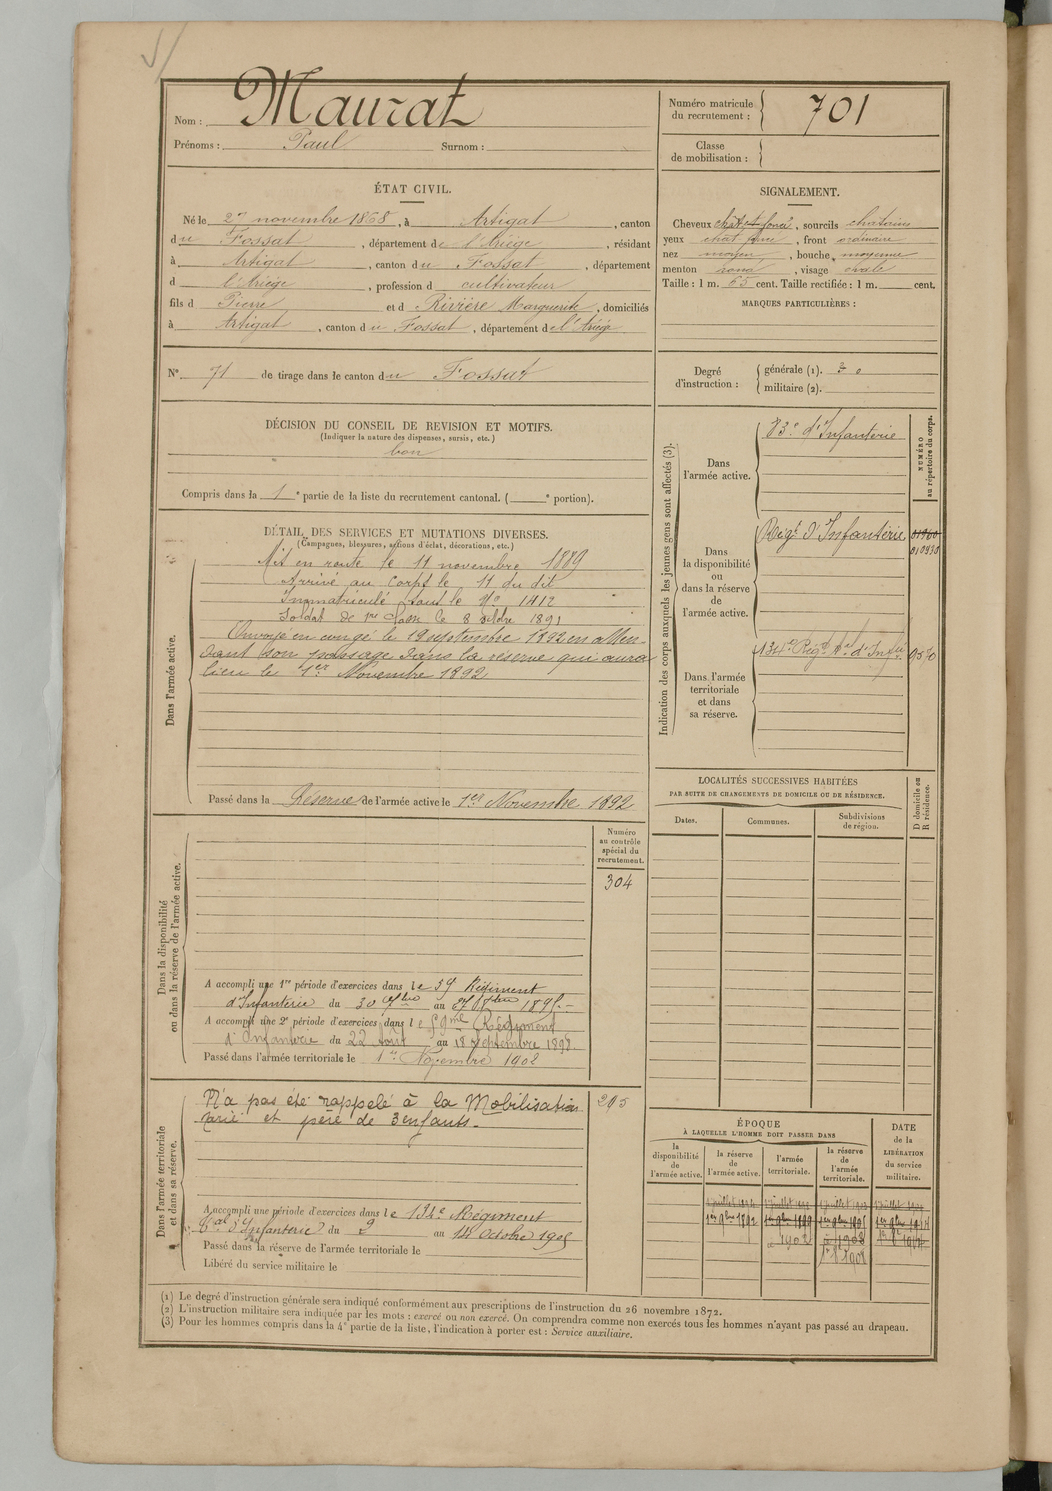 Nom : Maurat
Prénoms : Paul Surnom :
Numéro matricule du recrutement : 701
Classe de mobilisation :
ÉTAT CIVIL.
Né le 27 novembre 1868, à Artigat, canton
du Fossat, département de l'Ariège, résidant
à Artigat, canton du Fossat, département
d l'Ariège, profession d cultivateur
fils d Pierre et d Rivière Marguerite, domiciliés
à Artigat, canton du Fossat, département de l'Ariège
N° 71 de tirage dans le canton du Fossat
SIGNALEMENT.
Cheveux chât foncé, sourcils chatains
yeux chat foncé, front ordinaire
nez moyen, bouche moyenne
menton rond, visage ovale
Taille : 1 m. 65 cent. Taille rectifiée : 1 m. cent.
MARQUES PARTICULIÈRES :
Degré d'instruction : générale (1). 3
militaire (2).
DÉCISION DU CONSEIL DE REVISION ET MOTIFS.
(Indiquer la nature des dispenses, sursis, etc.)
bon
Compris dans la 1e partie de la liste du recrutement cantonal. ( e portion).
DÉTAIL DES SERVICES ET MUTATIONS DIVERSES.
(Campagnes, blessures, actions d'éclat, décorations, etc.)
Dans l'armée active.
Mis en route le 11 novembre 1889
Arrivé au Corps le 11 du dit
Immatriculé sous le No 1412
Soldat de 1re classe le 8 octbre 1891
Envoyé en congé le 19 septembre 1892 en atten-
dant son passage dans la réserve qui aura
lieu le 1er Novembre 1892
Passé dans la Réserve de l'armée active le 1er Novembre 1892
Indication des corps auxquels les jeunes gens sont affectés (3).
NUMÉRO au répertoire du corps.
Dans l'armée active.
83e d'Infanterie
Dans la disponibilité ou dans la réserve de l'armée active.
Régt d'Infanterie
Dans l'armée territoriale et dans sa réserve.
134e Régt Tal d'Infie
LOCALITÉS SUCCESSIVES HABITÉES
PAR SUITE DE CHANGEMENTS DE DOMICILE OU DE RÉSIDENCE.
Dates.
Communes.
Subdivisions de région.
D domicile ou R résidence.
Dans la disponibilité ou dans la réserve de l'armée active.
Numéro au contrôle spécial du recrutement.
304
A accompli une 1re période d'exercices dans le 59 Régiment
d'Infanterie du 30 7bre au 27 8bre 1895
A accompli une 2e période d'exercices dans le 59me Régiment
d'Infanterie du 22 Août au 18 Septembre 1898
Passé dans l'armée territoriale le 1er Novembre 1902
Dans l'armée territoriale et dans sa réserve.
N'a pas été rappelé à la Mobilisation
Marié et père de 3 enfants.
295
A accompli une période d'exercices dans le 134e Régiment
Tal d'Infanterie du 2 au 14 Octobre 1905
Passé dans la réserve de l'armée territoriale le
Libéré du service militaire le
ÉPOQUE
À LAQUELLE L'HOMME DOIT PASSER DANS
la disponibilité de l'armée active.
la réserve de l'armée active.
l'armée territoriale.
la réserve de l'armée territoriale.
DATE de la LIBÉRATION du service militaire.
1er 9bre 1892
1902
1908
(1) Le degré d'instruction générale sera indiqué conformément aux prescriptions de l'instruction du 26 novembre 1872.
(2) L'instruction militaire sera indiquée par les mots : exercé ou non exercé. On comprendra comme non exercés tous les hommes n'ayant pas passé au drapeau.
(3) Pour les hommes compris dans la 4e partie de la liste, l'indication à porter est : Service auxiliaire.